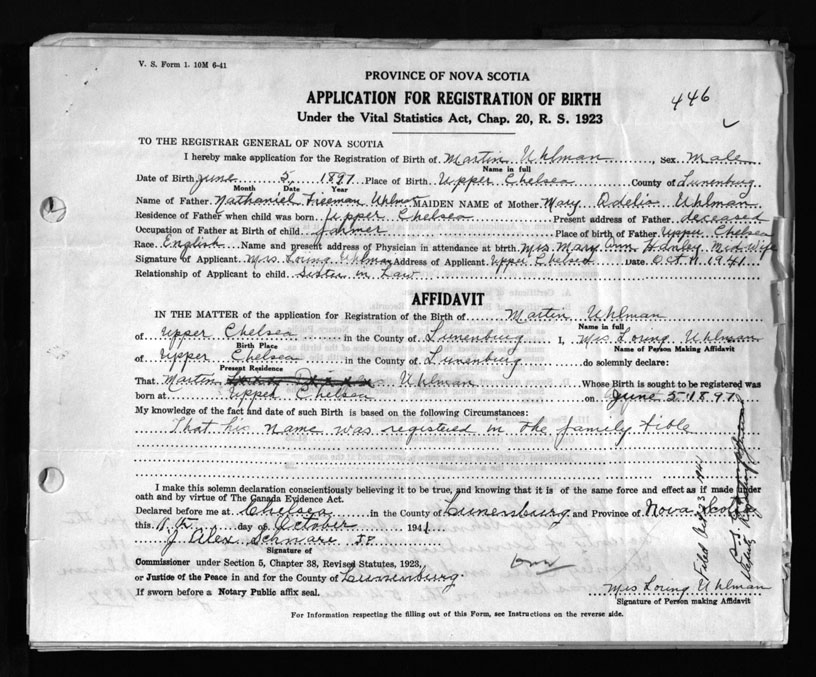 V. S. Form 1. 10M 6-41
PROVINCE OF NOVA SCOTIA
446
APPLICATION FOR REGISTRATION OF BIRTH
Under the Vital Statistics Act, Chap. 20, R. S. 1923
TO THE REGISTRAR GENERAL OF NOVA SCOTIA
I hereby make application for the Registration of Birth of Martin Uhlman, Sex Male
Name in full
Date of Birth June 5 1897 Place of Birth Upper Chelsea County of Lunenburg
Month Date Year
Name of Father Nathaniel Freeman Uhlman MAIDEN NAME of Mother Mary Adelia Uhlman
Residence of Father when child was born Upper Chelsea Present address of Father deceased
Occupation of Father at Birth of child farmer Place of birth of Father Upper Chelsea
Race English Name and present address of Physician in attendance at birth Mrs Mary Ann Mid Wife
Signature of Applicant Mrs Loring Uhlman Address of Applicant Upper Chelsea Date Oct 11 1941
Relationship of Applicant to child Sister in Law
AFFIDAVIT
IN THE MATTER of the application for Registration of the Birth of Martin Uhlman
Name in full
of Upper Chelsea in the County of Lunenburg I, Mrs Loring Uhlman
Birth Place Name of Person Making Affidavit
of Upper Chelsea in the County of Lunenburg do solemnly declare:
Present Residence
That Martin Uhlman Whose Birth is sought to be registered was
born at Upper Chelsea on June 5 1897
My knowledge of the fact and date of such Birth is based on the following Circumstances:
That his name was registered in the family bible
I make this solemn declaration conscientiously believing it to be true, and knowing that it is of the same force and effect as if made under
oath and by virtue of The Canada Evidence Act.
Declared before me at Chelsea in the County of Lunenburg and Province of Nova Scotia
this 11th day of October 1941
J Alex Schnare J.P.
Signature of
Commissioner under Section 5, Chapter 38, Revised Statutes, 1923,
or Justice of the Peace in and for the County of Lunenburg.
If sworn before a Notary Public affix seal.
Mrs Loring Uhlman
Signature of Person making Affidavit
For Information respecting the filling out of this Form, see Instructions on the reverse side.
Filed Oct 1941
Deputy Registrar